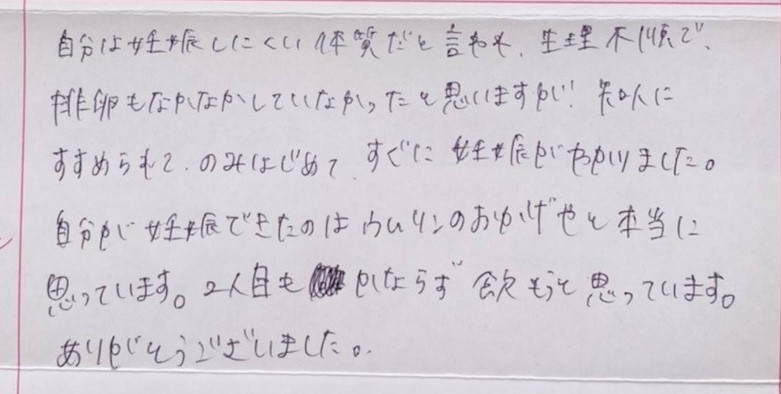 自分は妊娠しにくい体質だと言われ、生理不順で、
排卵もなかなかしていなかったと思いますが、知人に
すすめられて、のみはじめて、すぐに妊娠がわかりました。
自分が妊娠できたのはウムリンのおかげやと本当に
思っています。2人目もかならず飲もうと思っています。
ありがとうございました。